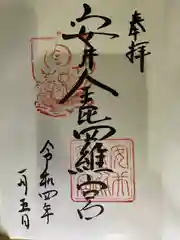 奉拝
安井金毘羅宮
令和四年
一月五日